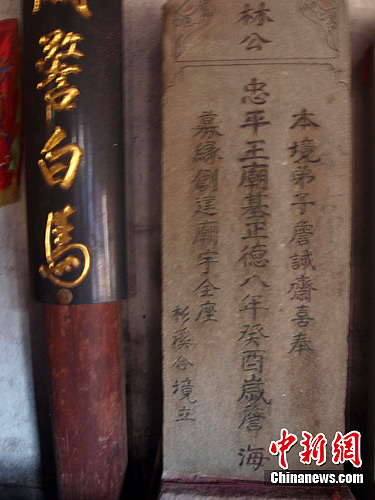 林公
本境弟子詹誠齋喜奉
忠平王廟基正德八年癸酉歲詹海
募緣創建廟宇全座
杉溪合境立
白馬
中新网
Chinanews.com